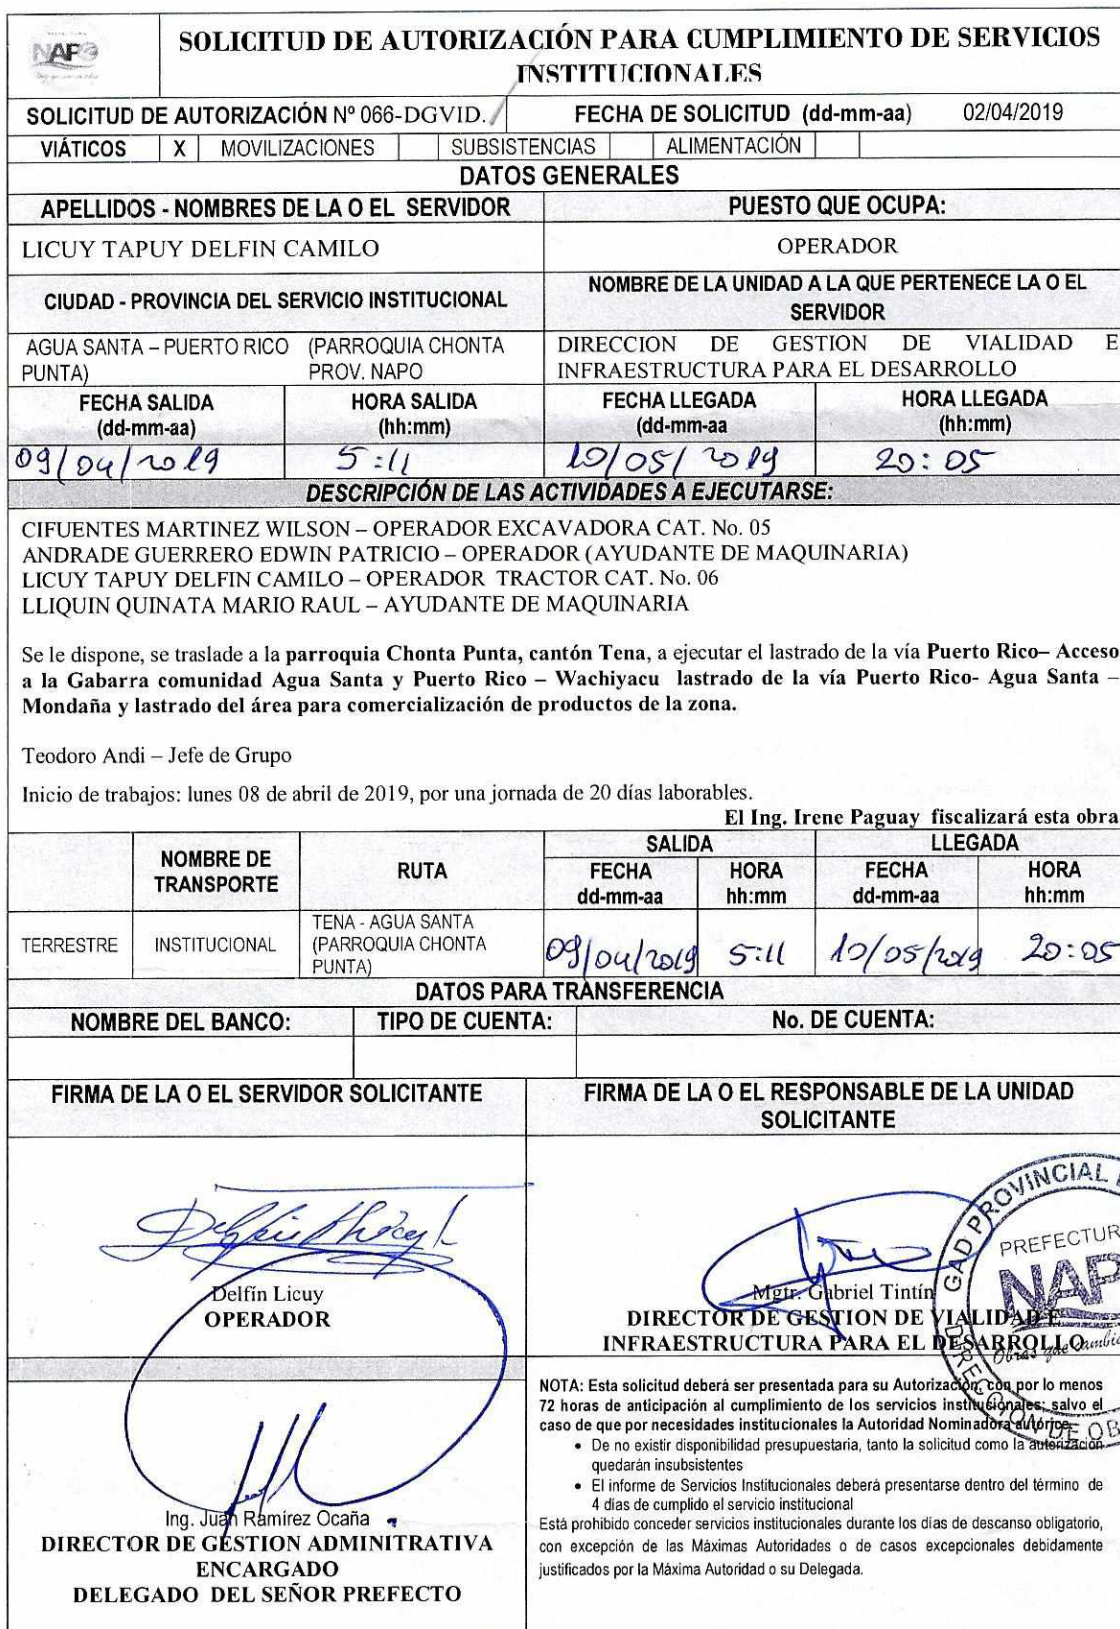 NAPO
SOLICITUD DE AUTORIZACIÓN PARA CUMPLIMIENTO DE SERVICIOS
INSTITUCIONALES
SOLICITUD DE AUTORIZACIÓN Nº 066-DGVID. FECHA DE SOLICITUD (dd-mm-aa) 02/04/2019
VIÁTICOS X MOVILIZACIONES SUBSISTENCIAS ALIMENTACIÓN
DATOS GENERALES
APELLIDOS - NOMBRES DE LA O EL SERVIDOR PUESTO QUE OCUPA:
LICUY TAPUY DELFIN CAMILO OPERADOR
CIUDAD - PROVINCIA DEL SERVICIO INSTITUCIONAL NOMBRE DE LA UNIDAD A LA QUE PERTENECE LA O EL
SERVIDOR
AGUA SANTA – PUERTO RICO (PARROQUIA CHONTA DIRECCION DE GESTION DE VIALIDAD E
PUNTA) PROV. NAPO INFRAESTRUCTURA PARA EL DESARROLLO
FECHA SALIDA HORA SALIDA FECHA LLEGADA HORA LLEGADA
(dd-mm-aa) (hh:mm) (dd-mm-aa (hh:mm)
09/04/2019 5:11 10/05/2019 20:05
DESCRIPCIÓN DE LAS ACTIVIDADES A EJECUTARSE:
CIFUENTES MARTINEZ WILSON – OPERADOR EXCAVADORA CAT. No. 05
ANDRADE GUERRERO EDWIN PATRICIO – OPERADOR (AYUDANTE DE MAQUINARIA)
LICUY TAPUY DELFIN CAMILO – OPERADOR TRACTOR CAT. No. 06
LLIQUIN QUINATA MARIO RAUL – AYUDANTE DE MAQUINARIA
Se le dispone, se traslade a la parroquia Chonta Punta, cantón Tena, a ejecutar el lastrado de la vía Puerto Rico– Acceso
a la Gabarra comunidad Agua Santa y Puerto Rico – Wachiyacu lastrado de la vía Puerto Rico- Agua Santa –
Mondaña y lastrado del área para comercialización de productos de la zona.
Teodoro Andi – Jefe de Grupo
Inicio de trabajos: lunes 08 de abril de 2019, por una jornada de 20 días laborables.
El Ing. Irene Paguay fiscalizará esta obra
SALIDA LLEGADA
NOMBRE DE TRANSPORTE RUTA FECHA dd-mm-aa HORA hh:mm FECHA dd-mm-aa HORA hh:mm
TENA - AGUA SANTA
TERRESTRE INSTITUCIONAL (PARROQUIA CHONTA 09/04/2019 5:11 10/05/2019 20:05
PUNTA)
DATOS PARA TRANSFERENCIA
NOMBRE DEL BANCO: TIPO DE CUENTA: No. DE CUENTA:
FIRMA DE LA O EL SERVIDOR SOLICITANTE FIRMA DE LA O EL RESPONSABLE DE LA UNIDAD
SOLICITANTE
GAD PROVINCIAL
PREFECTUR
NAP
Delfín Licuy
OPERADOR
Mgtr. Gabriel Tintín
DIRECTOR DE GESTION DE VIALIDAD E
INFRAESTRUCTURA PARA EL DESARROLLO
Obras que cambi
DIRECCIÓN DE OB
NOTA: Esta solicitud deberá ser presentada para su Autorización, con por lo menos
72 horas de anticipación al cumplimiento de los servicios institucionales; salvo el
caso de que por necesidades institucionales la Autoridad Nominadora autorice.
• De no existir disponibilidad presupuestaria, tanto la solicitud como la autorización
quedarán insubsistentes
• El informe de Servicios Institucionales deberá presentarse dentro del término de
4 días de cumplido el servicio institucional
Está prohibido conceder servicios institucionales durante los días de descanso obligatorio,
con excepción de las Máximas Autoridades o de casos excepcionales debidamente
justificados por la Máxima Autoridad o su Delegada.
Ing. Juan Ramírez Ocaña
DIRECTOR DE GESTION ADMINITRATIVA
ENCARGADO
DELEGADO DEL SEÑOR PREFECTO